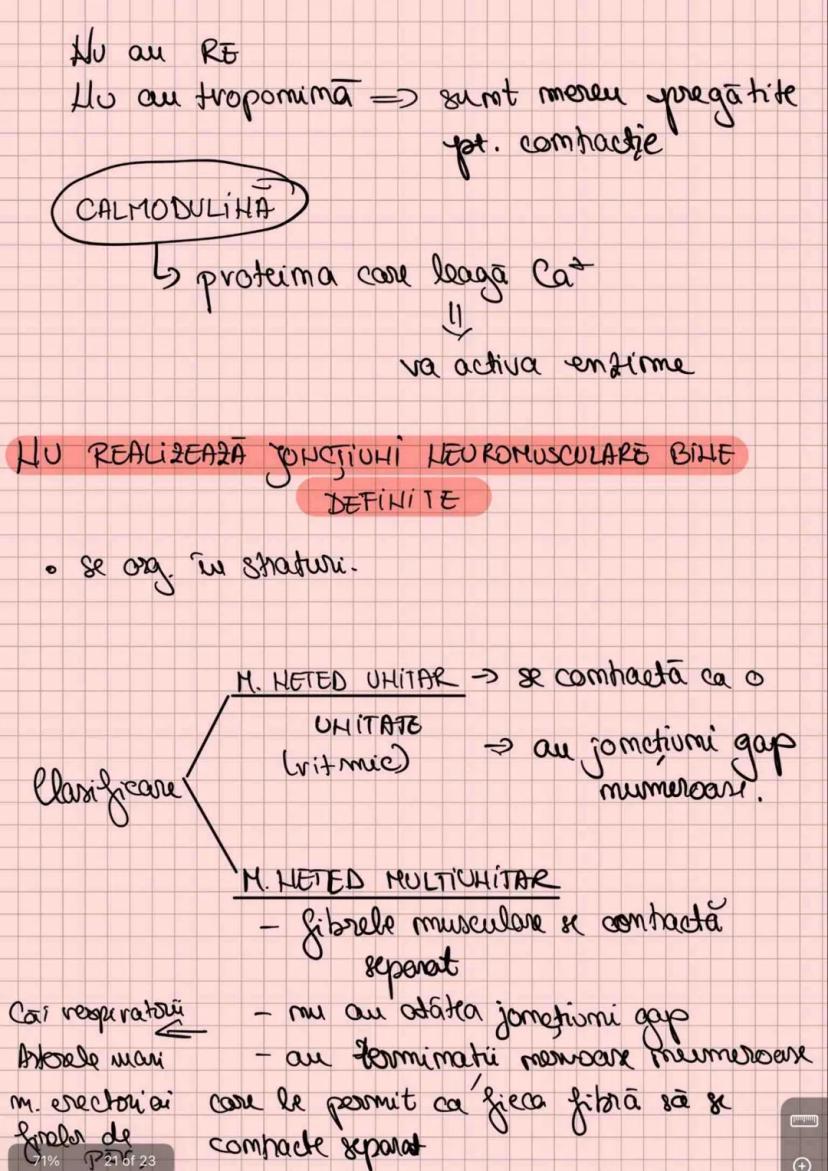 Nu au RE
Nu au troponină => sunt mereu pregătite
pt. contracție
CALMODULINĂ
↳ proteina care leagă Ca²⁺
⇓
va activa enzime
NU REALIZEAZĂ JONCȚIUNI NEUROMUSCULARE BINE
DEFINITE
• se org. în straturi.
Clasificare
M. NETED UNITAR → se contractă ca o
UNITATE
(ritmic)
⇒ au joncțiuni gap
numeroase.
M. NETED MULTIUNITAR
- fibrele musculare se contractă
separat
Căi respiratorii ⇐
Arterele mari
m. erectori ai
firelor de
păr
- nu au atâtea joncțiuni gap
- au terminații nervoase numeroase
care le permit ca fieca fibră să se
contracte separat
71%
21 of 23